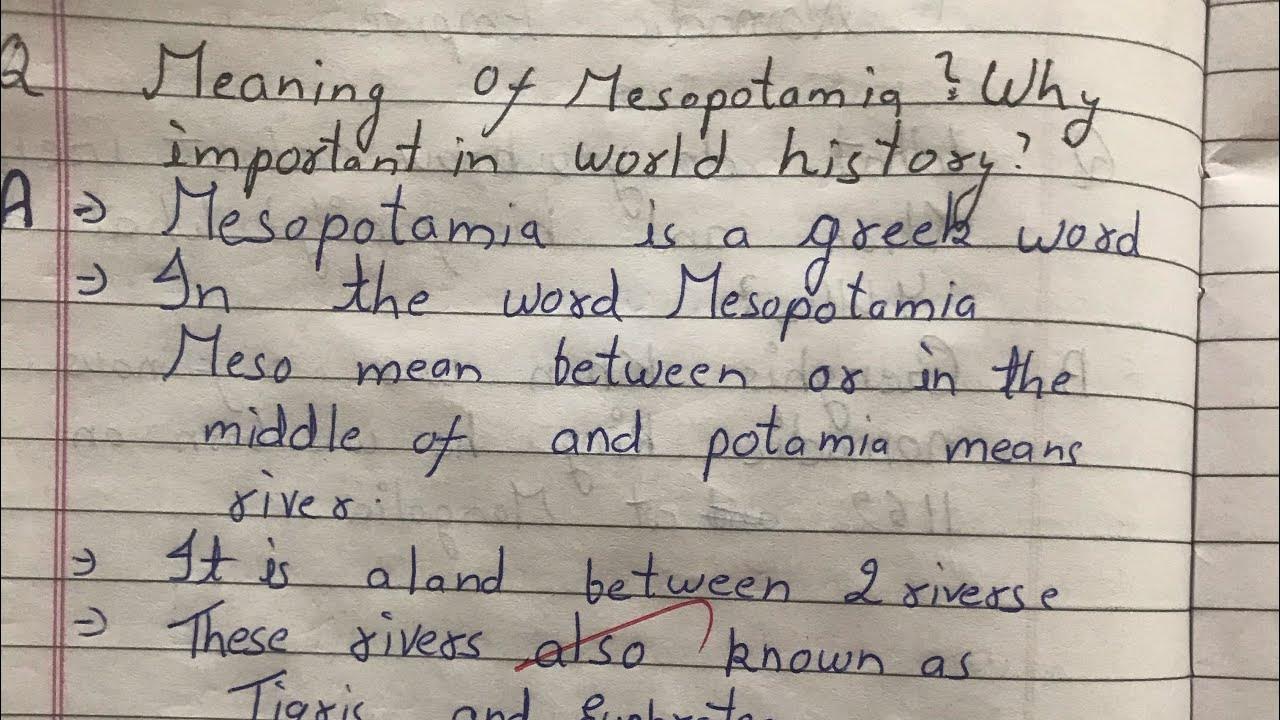 Q Meaning of Mesopotamia? Why
important in world history?
A ⇒ Mesopotamia is a greek word
⇒ In the word Mesopotamia
Meso mean between or in the
middle of and potamia means
river.
⇒ It is a land between 2 riverse
⇒ These rivers also known as
Tigris and